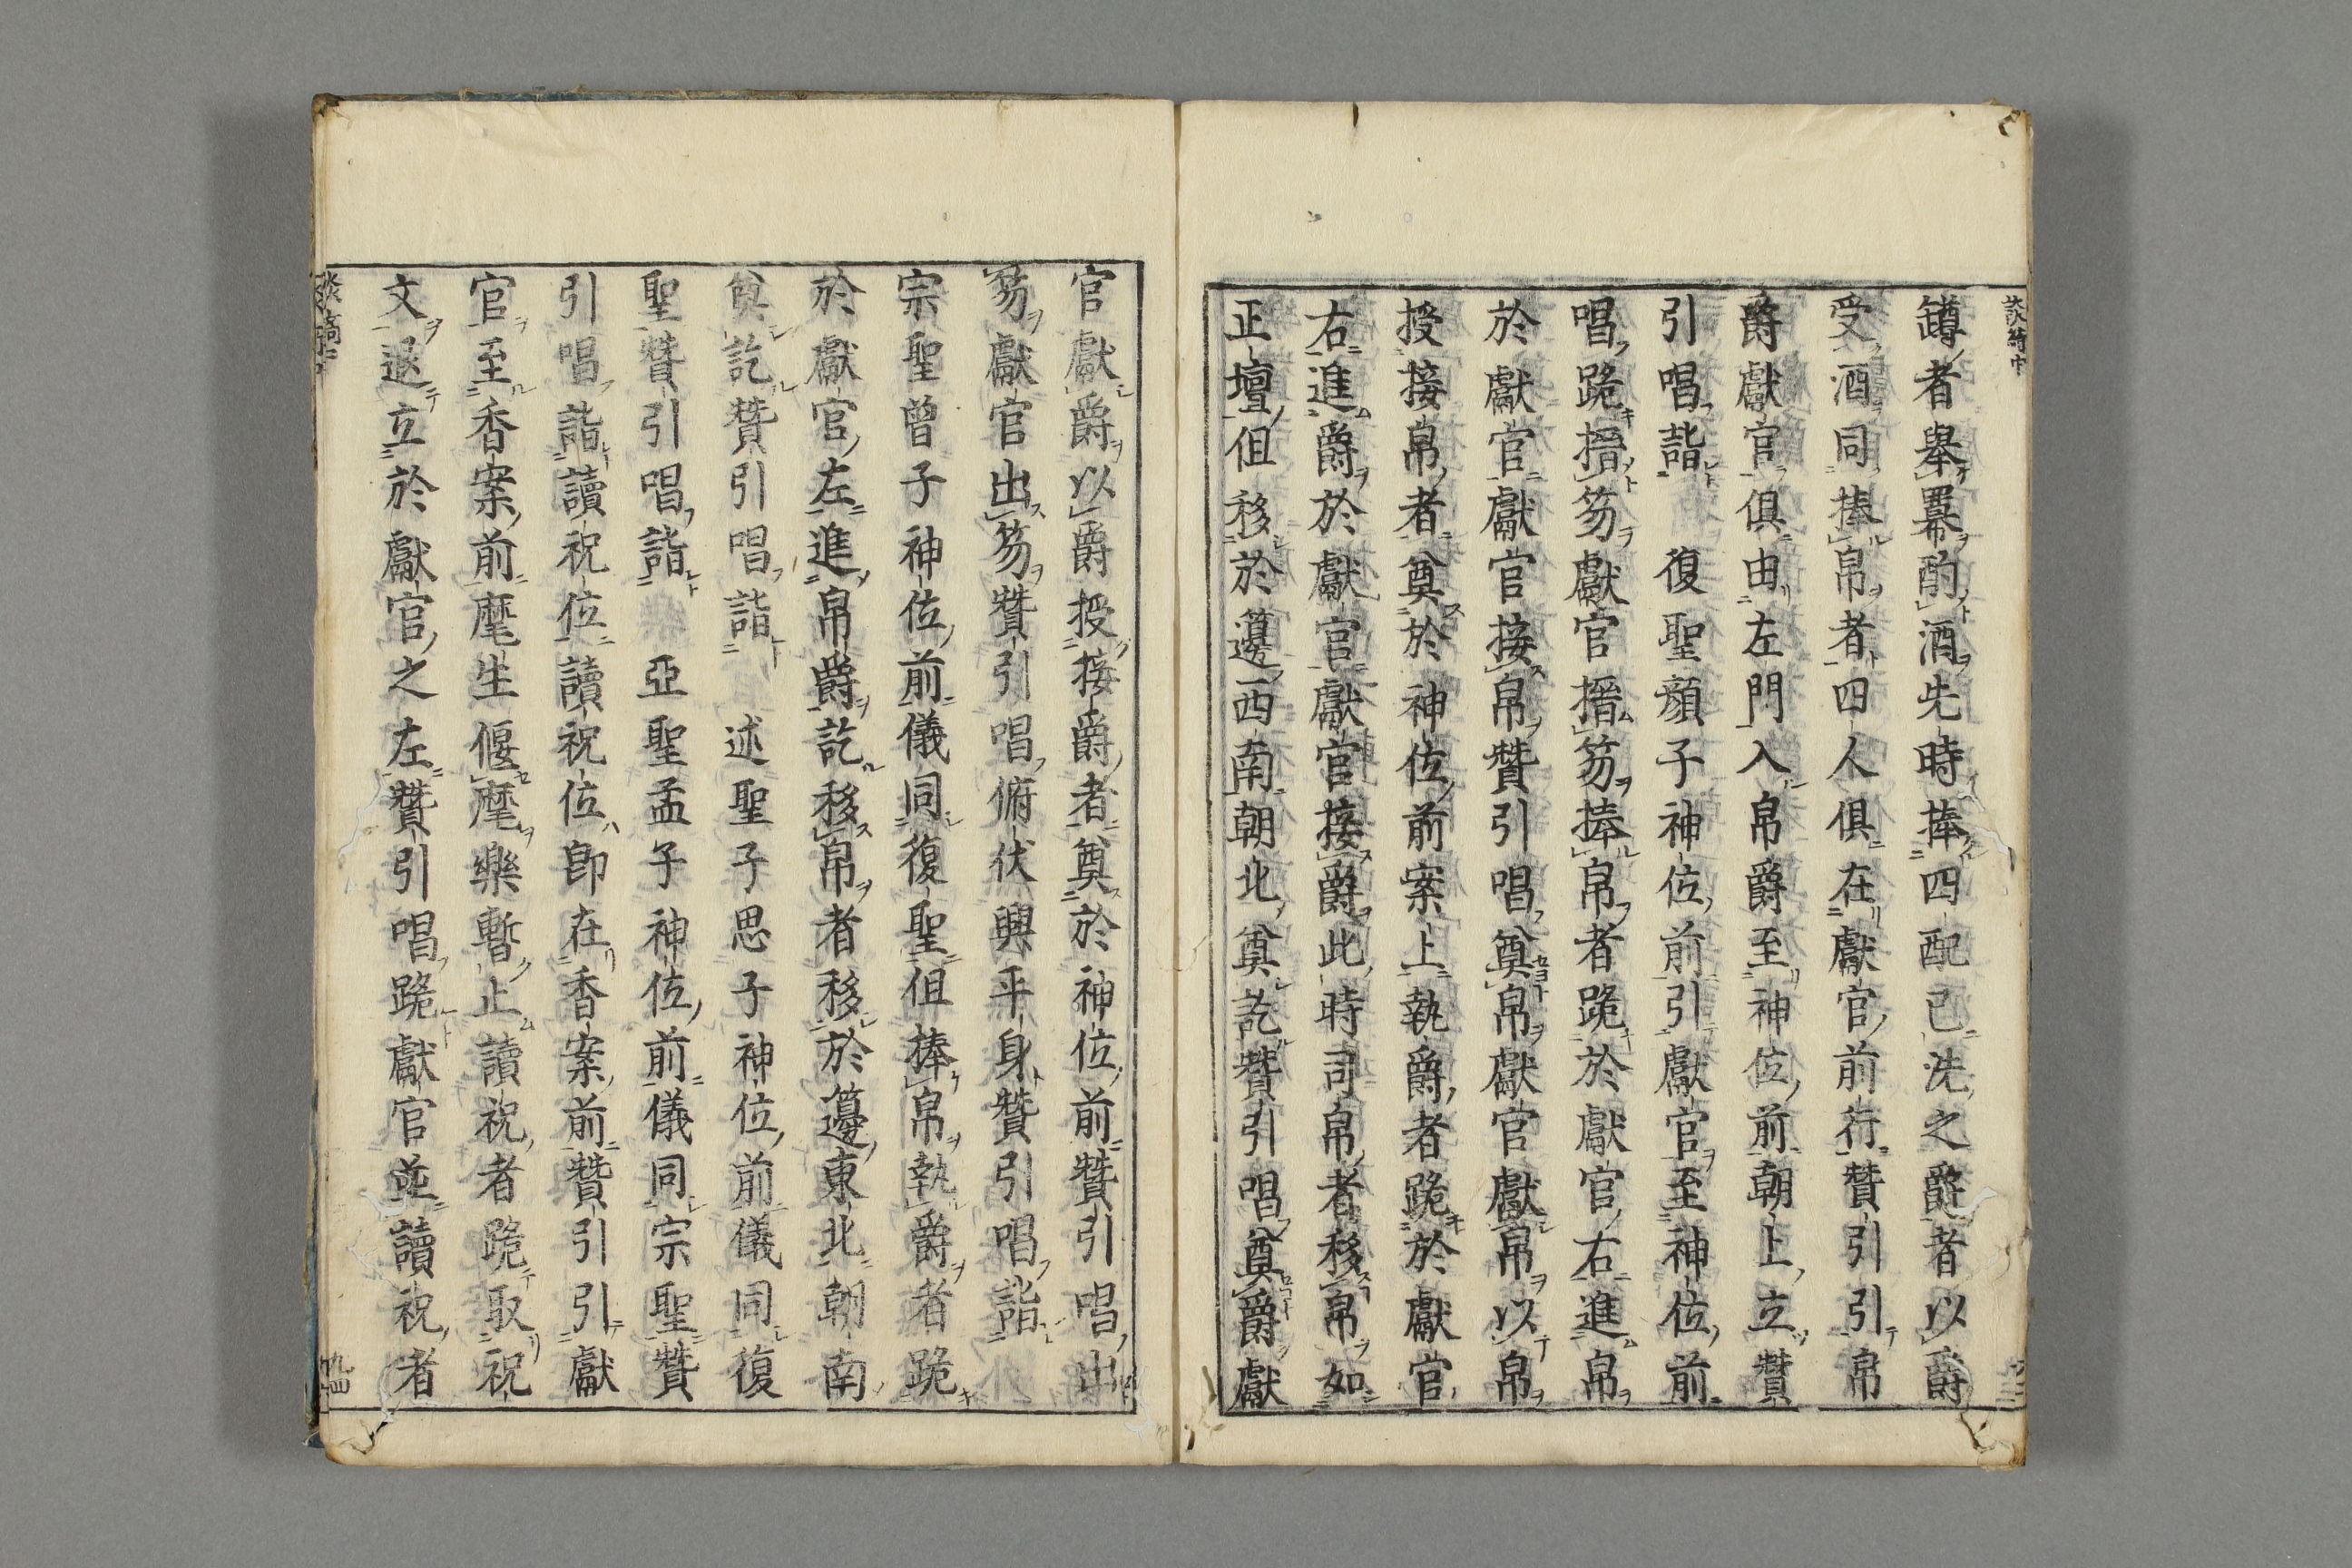 罇者舉羃酌酒先時捧四配已洗之爵者以爵
受酒同捧帛者四人俱在獻官前行贊引引帛
爵獻官俱由左門入帛爵至神位前朝上立贊
引唱詣　復聖顔子神位前引獻官至神位前
唱跪搢笏獻官搢笏捧帛者跪於獻官右進帛
於獻官獻官接帛贊引唱奠帛獻官獻帛以帛
授接帛者奠於神位前案上執爵者跪於獻官
右進爵於獻官獻官接爵此時司帛者移帛如
正壇但移於籩西南朝北奠訖贊引唱奠爵獻
官獻爵以爵授接爵者奠於神位前贊引唱出
笏獻官出笏贊引唱俯伏興平身贊引唱詣
宗聖曾子神位前儀同復聖但捧帛執爵者跪
於獻官左進帛爵訖移帛者移於籩東北朝南
奠訖贊引唱詣　述聖子思子神位前儀同復
聖贊引唱詣　亞聖孟子神位前儀同宗聖贊
引唱詣讀祝位讀祝位即在香案前贊引引獻
官至香案前麾生偃麾樂暫止讀祝者跪取祝
文退立於獻官之左贊引唱跪獻官並讀祝者
九四